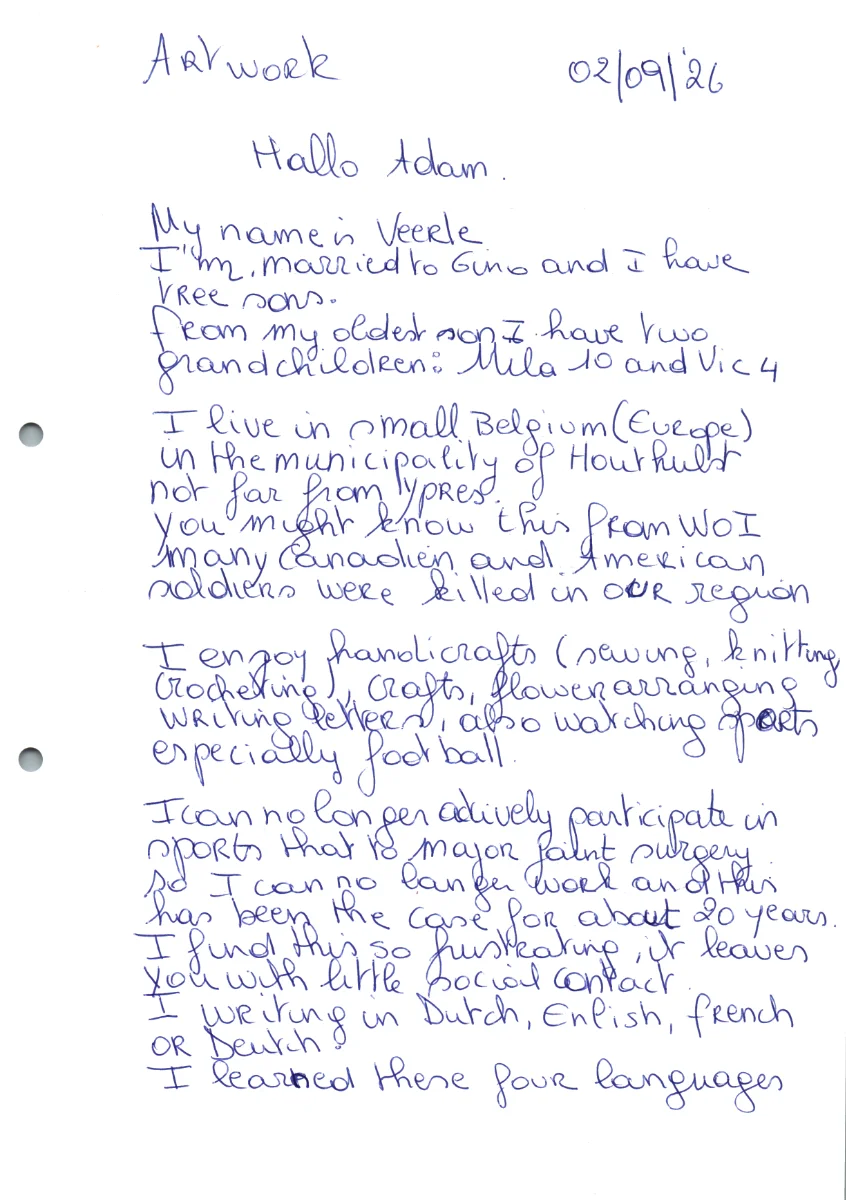 Artwork
02/09/'26
Hallo Adam.
My name is Veerle
I'm married to Gino and I have
tree sons.
from my oldest son I have two
grandchildren: Mila 10 and Vic 4
I live in small Belgium (Europe)
in the municipality of Houthulst
not far from Ypres.
you might know this from WOI
many Canadien and American
soldiers were killed in our region
I enjoy handicrafts (sewing, knitting,
crocheting), crafts, flower arranging
writing letters, also watching sports
especially football.
I can no longer actively participate in
sports that to major joint surgery
so I can no longer work and this
has been the case for about 20 years.
I find this so frustrating, it leaves
you with little social contact.
I writing in Dutch, Enlish, french
or Deutch.
I learned these four languages